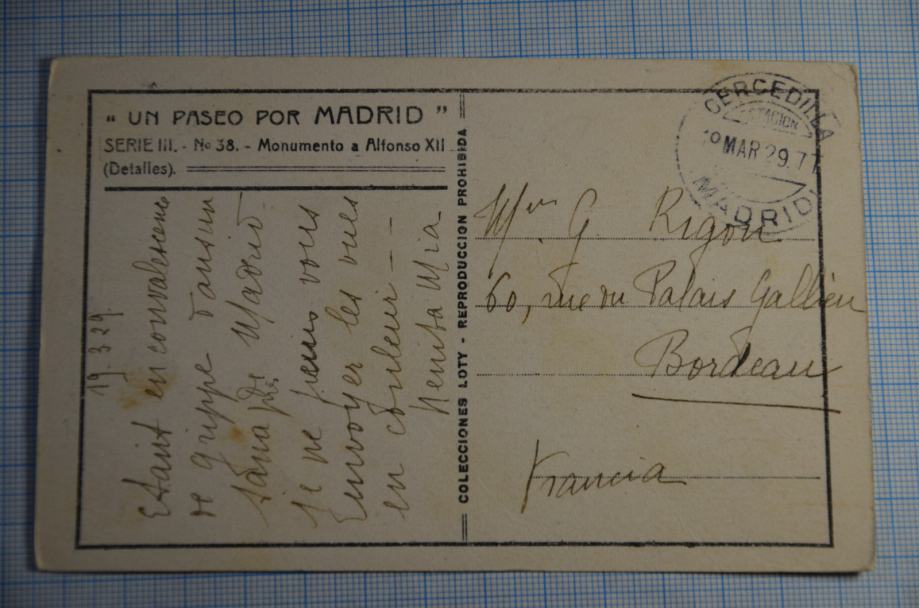 " UN PASEO POR MADRID "
SERIE III. - No 38. - Monumento a Alfonso XII
(Detalles).
19.3.29.
Etant en convalescence
de grippe dans un
sana près Madrid
je ne peux vous
Envoyer les vues
en couleur -
COLECCIONES LOTY - REPRODUCCION PROHIBIDA
CERCEDILLA
ESTACION
MAR 29
MADRID
G. Rigou
60, rue du Palais Gallien
Bordeau
Francia